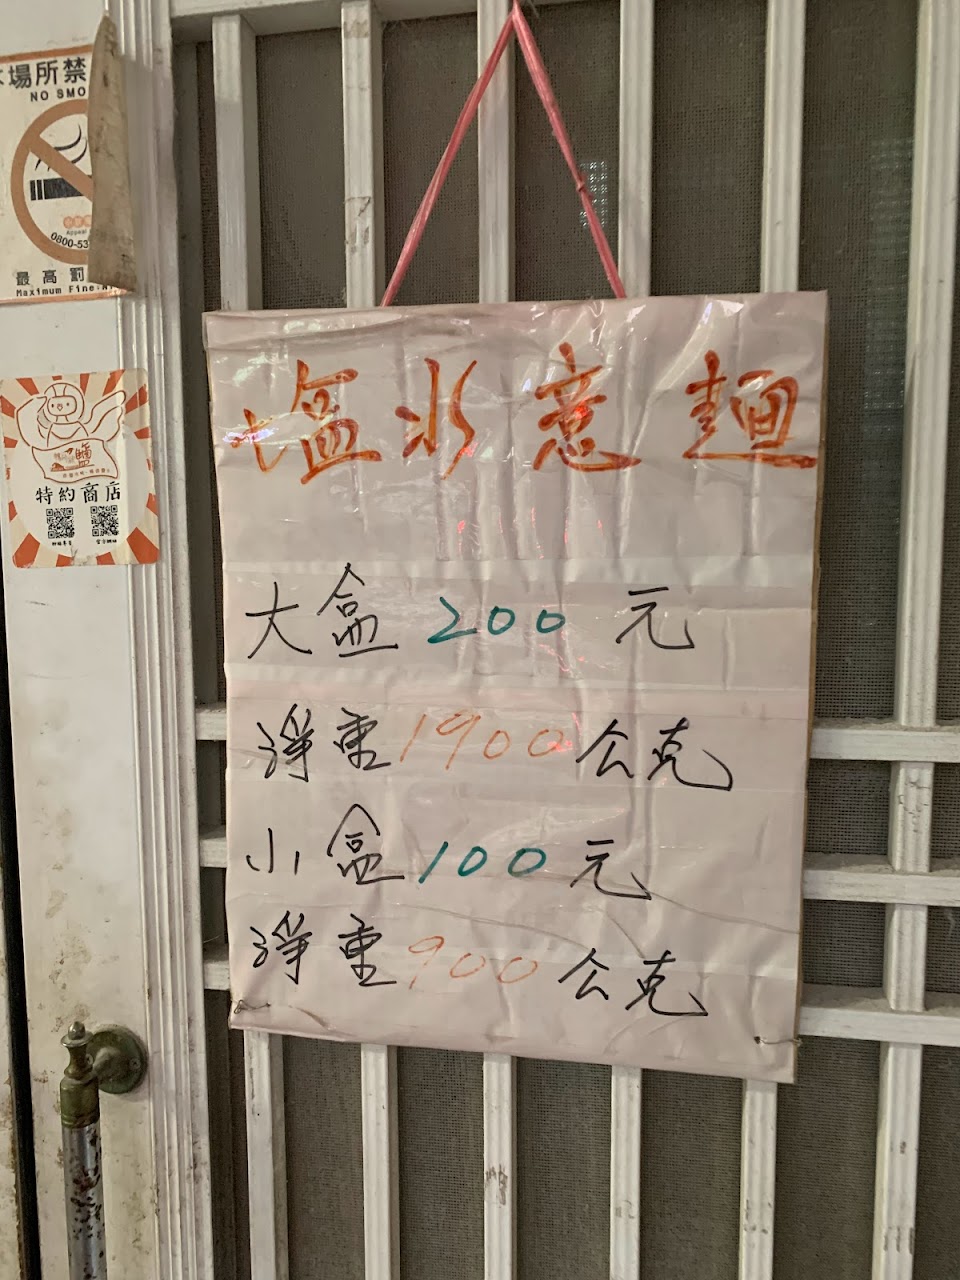 本場所禁
NO SMO
0800-53
最高罰
Maximum Fine:
特約商店
塩水意麵
大盒200元
淨重1900公克
小盒100元
淨重900公克